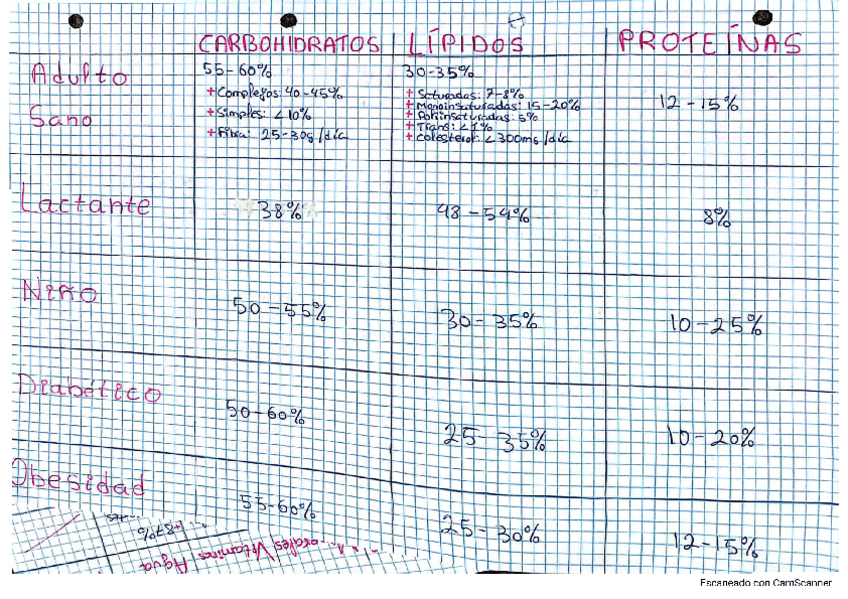 CARBOHIDRATOS LÍPIDOS PROTEÍNAS
Adulto Sano
55-60%
+Complejos: 40-45%
+Simples: <10%
+Fibra: 25-30g/día
30-35%
+ Saturadas: 7-8%
+ Monoinsaturadas: 15-20%
+ Poliinsaturadas: 5%
+ Trans: <1%
+ Colesterol: <300mg/día
12-15%
Lactante 38% 48-54% 8%
Niño 50-55% 30-35% 10-25%
Diabético 50-60% 25-35% 10-20%
Obesidad 55-60% 25-30% 12-15%
Vitaminas Agua
Escaneado con CamScanner